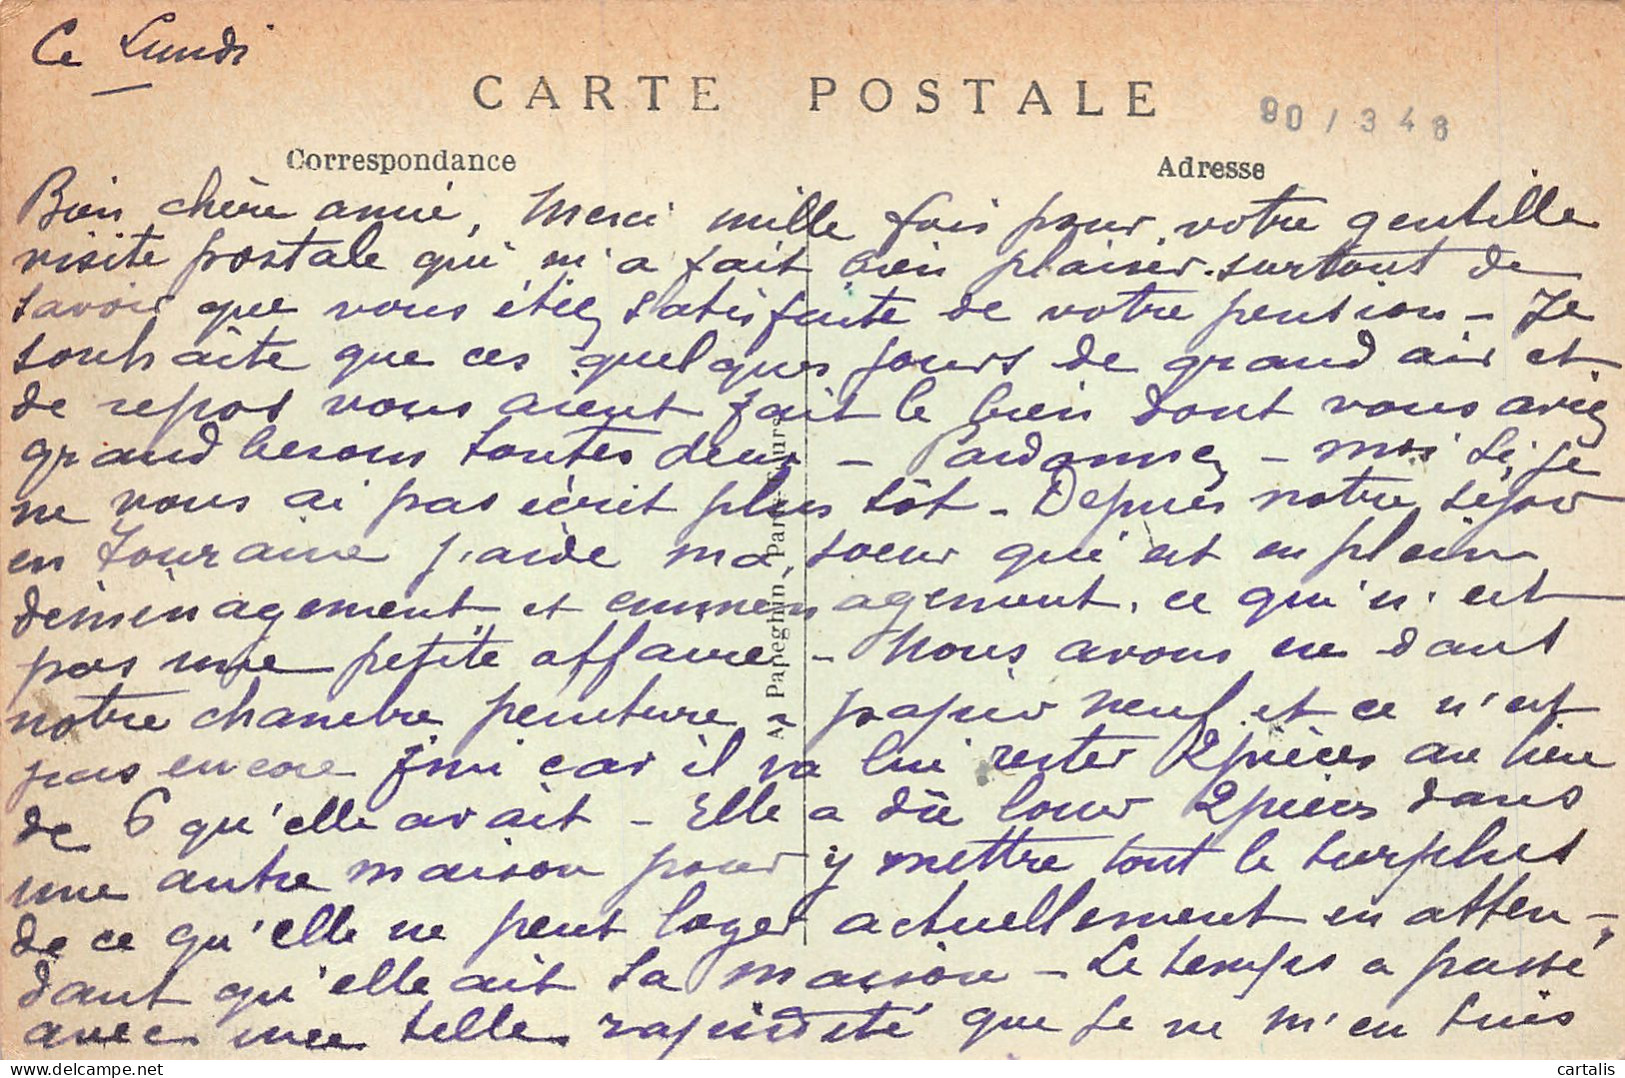 Ce Lundi
CARTE POSTALE
90 / 348
Correspondance
Adresse
Bien chère amie, Merci mille fois pour votre gentille
visite postale qui m'a fait bien plaisir surtout de
savoir que vous étiez satisfaite de votre pension - Je
souhaite que ces quelques jours de grand air et
de repos vous aient fait le bien dont vous aviez
grand besoin toutes deux - Pardonnez-moi si je
ne vous ai pas écrit plus tôt - Depuis notre séjour
en Touraine j'aide ma soeur qui est en plein
déménagement et emménagement, ce qui n'est
pas une petite affaire - Nous avons eu dans
notre chambre peinture, papier neuf et ce n'est
pas encore fini car il va lui rester 2 pièces au lieu
de 6 qu'elle avait - Elle a dû louer 2 pièces dans
une autre maison pour y mettre tout le surplus
de ce qu'elle ne peut loger actuellement en atten-
dant qu'elle ait sa maison - Le temps a passé
avec une telle rapidité que je ne m'en suis
A. Papeghin, Paris-Tours
cartalis